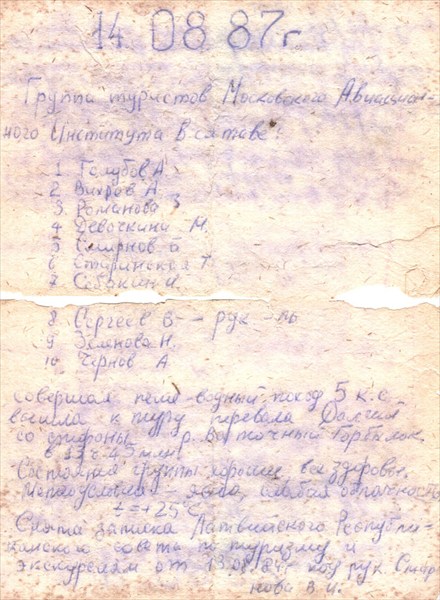 14 08 87г
Группа туристов Московского Авиацион-
ного Института в составе:
1 Голубов А
2 Вихров А.
3 Романова З
4 Девочкина М.
5 Смирнов Б
6 Т.
7 И.
8 Сергеев В – рук-ль
9 Зеленова Н.
10 Чернов А
совершая пеше-водный поход 5 к.с.
вышла к туру перевала
со стороны р. Восточный
в 13 ч 45 мин.
Состояние группы хорошее все здоровы.
Метеоусловия – слабая облачность
t=+25°C
Снята записка Латвийского Республи-
канского совета по туризму и
экскурсиям от 13.08.84г рук Смир
нова В.И.